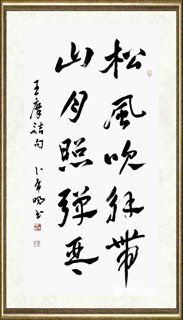 松風吹解帶
山月照彈琴
王摩詰句